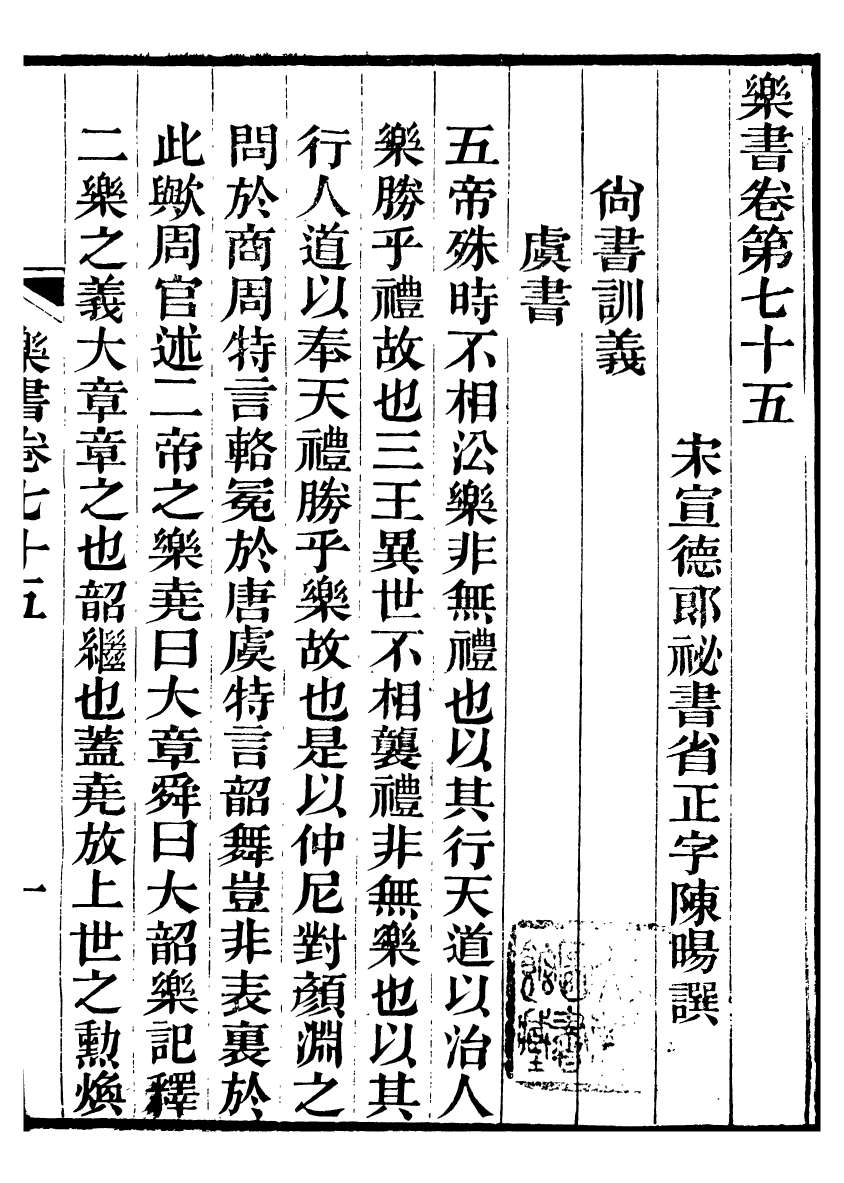 樂書卷第七十五
宋宣德郎祕書省正字陳暘譔
尚書訓義
虞書
五帝殊時不相沿樂非無禮也以其行天道以治人
樂勝乎禮故也三王異世不相襲禮非無樂也以其
行人道以奉天禮勝乎樂故也是以仲尼對顏淵之
問於商周特言輅冕於唐虞特言韶舞豈非表裏於
此歟周官述二帝之樂堯曰大章舜曰大韶樂記釋
二樂之義大章章之也韶繼也蓋堯放上世之勳煥
樂書卷七十五
一